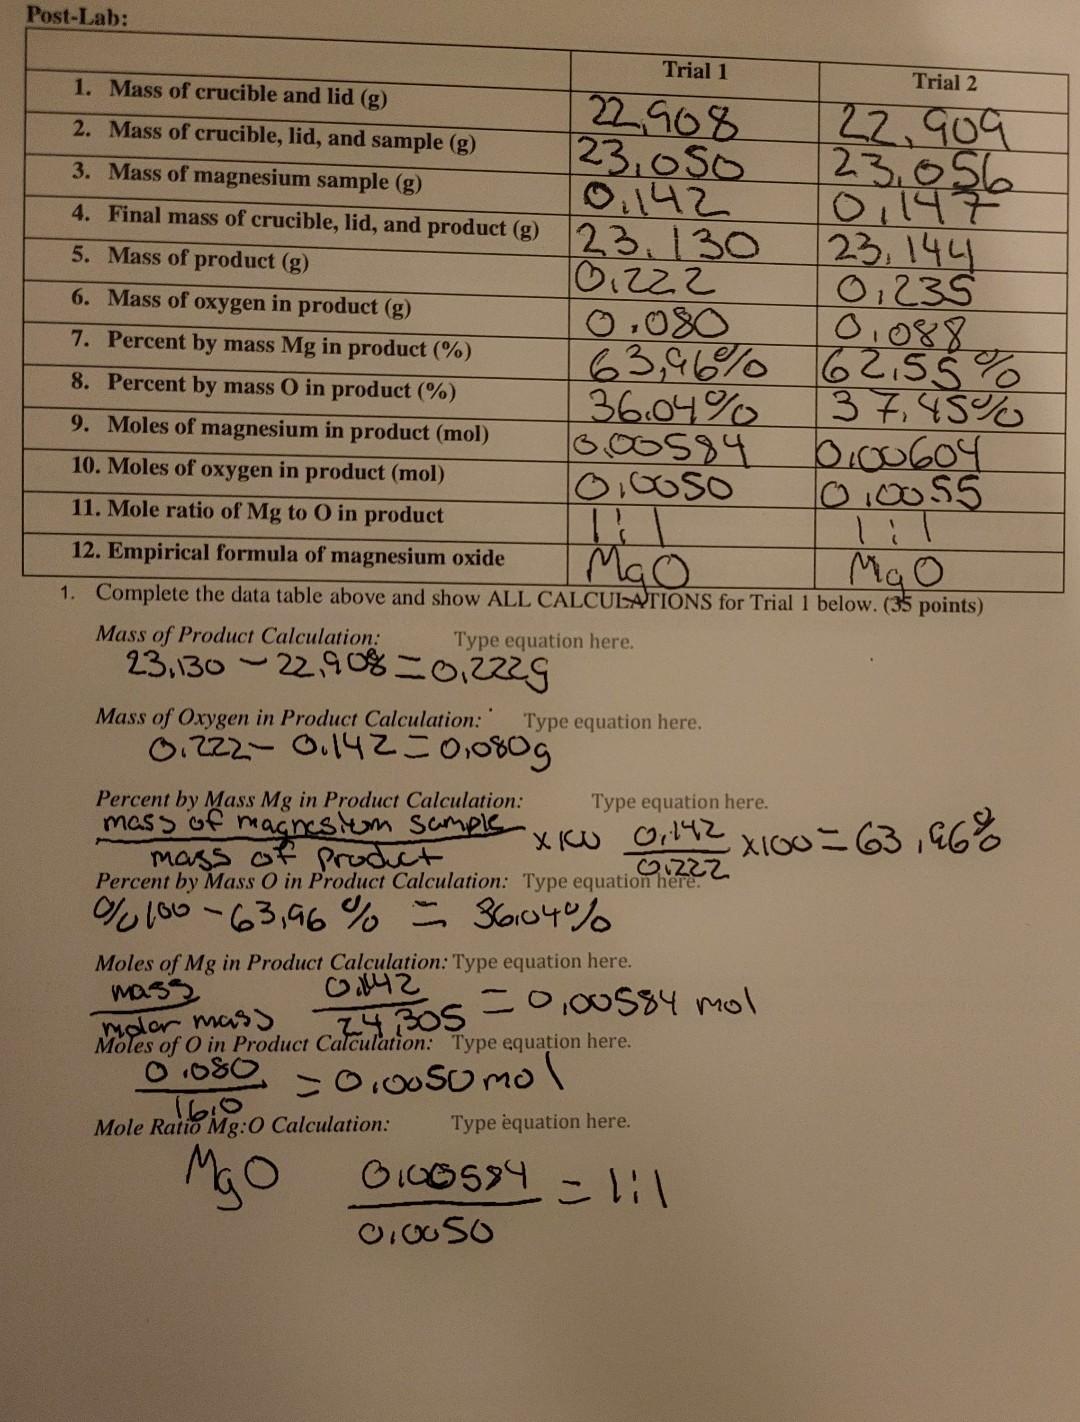 Post-Lab:
Trial 1 Trial 2
1. Mass of crucible and lid (g) 22.908 22.909
2. Mass of crucible, lid, and sample (g) 23.050 23.056
3. Mass of magnesium sample (g) 0.142 0.147
4. Final mass of crucible, lid, and product (g) 23.130 23.144
5. Mass of product (g) 0.222 0.235
6. Mass of oxygen in product (g) 0.080 0.088
7. Percent by mass Mg in product (%) 63.96% 62.55%
8. Percent by mass O in product (%) 36.04% 37.45%
9. Moles of magnesium in product (mol) 0.00584 0.00604
10. Moles of oxygen in product (mol) 0.0050 0.0055
11. Mole ratio of Mg to O in product 1:1 1:1
12. Empirical formula of magnesium oxide MgO MgO
1. Complete the data table above and show ALL CALCULATIONS for Trial 1 below. (35 points)
Mass of Product Calculation: Type equation here.
23.130 - 22.908 = 0.222g
Mass of Oxygen in Product Calculation: Type equation here.
0.222 - 0.142 = 0.080g
Percent by Mass Mg in Product Calculation: Type equation here.
mass of magnesium sample x 100 0.142 x100 = 63.96%
mass of product 0.222
Percent by Mass O in Product Calculation: Type equation here.
%100 - 63.96 % = 36.04%
Moles of Mg in Product Calculation: Type equation here.
mass 0.142 = 0.00584 mol
molar mass 24.305
Moles of O in Product Calculation: Type equation here.
0.080 = 0.0050 mol
16.0
Mole Ratio Mg:O Calculation: Type equation here.
MgO 0.00584 = 1:1
0.0050